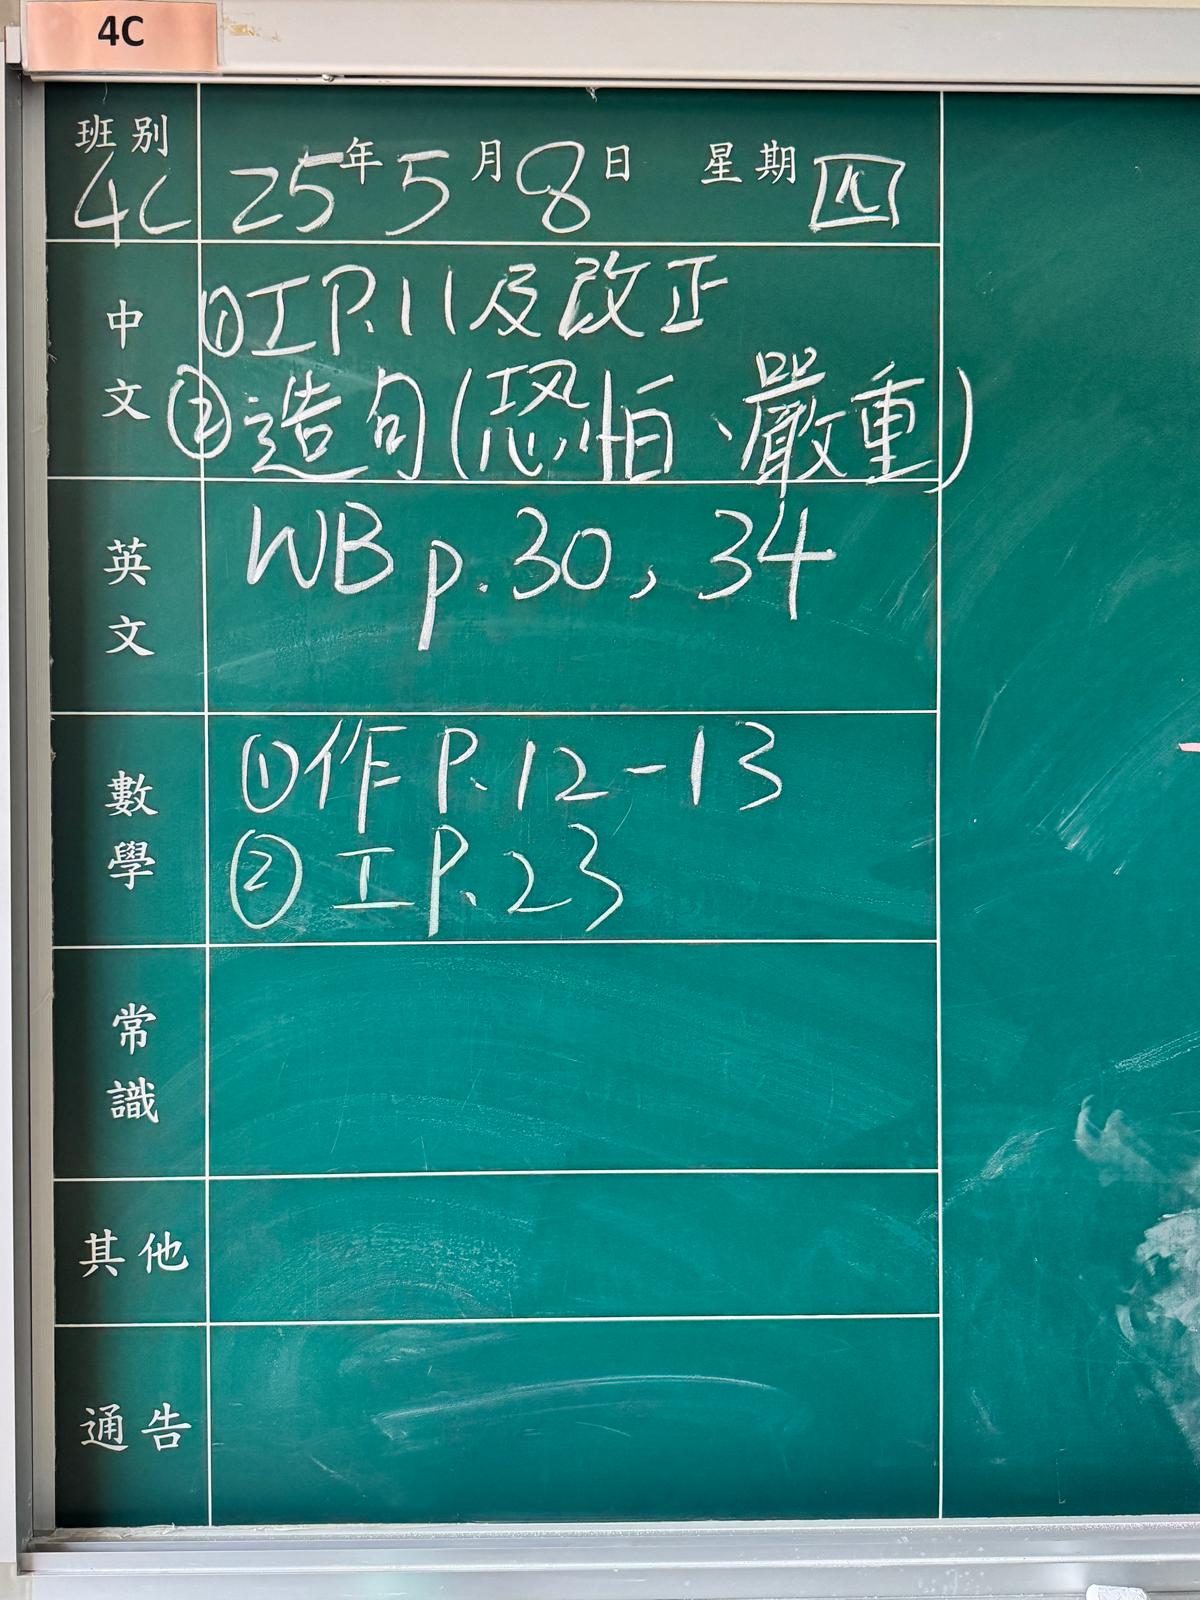 4C
班別
4C
25年5月8日 星期四
中文
①工P.11及改正
②造句(恐怕、嚴重)
英文
WB p.30, 34
數學
①作P.12-13
②工P.23
常識
其他
通告